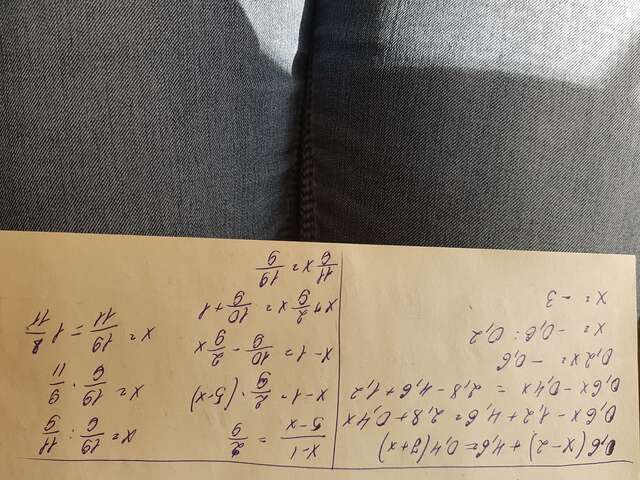 0,6(x-2)+4,6=0,4(7+x)
0,6x-1,2+4,6=2,8+0,4x
0,6x-0,4x = 2,8-4,6+1,2
0,2x= -0,6
x= -0,6:0,2
x= -3
x-1/5-x = 2/9
x-1= 2/9·(5-x)
x-1= 10/9 - 2/9 x
x+ 2/9 x= 10/9 +1
11/9 x= 19/9
x= 19/9 : 11/9
x= 19/9 · 9/11
x= 19/11 = 1 8/11